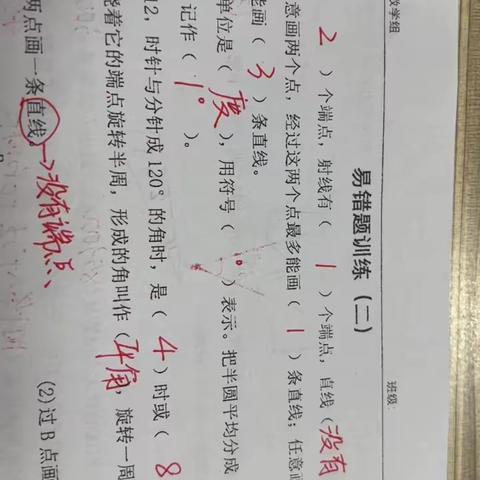 数学组
班级:
易错题训练（二）
2 ）个端点，射线有（ 1 ）个端点，直线（没有
意画两个点，经过这两个点最多能画（ 1 ）条直线；任意
能画（ 3 ）条直线。
单位是（ 度 ），用符号（ ° ）表示。把半圆平均分成
记作（ 1° ）。
12，时针与分针成 120° 的角时，是（ 4 ）时或（ 8
绕着它的端点旋转半周，形成的角叫作（平角，旋转一周
两点画一条直线。→没有端点、
(2)过 B 点画